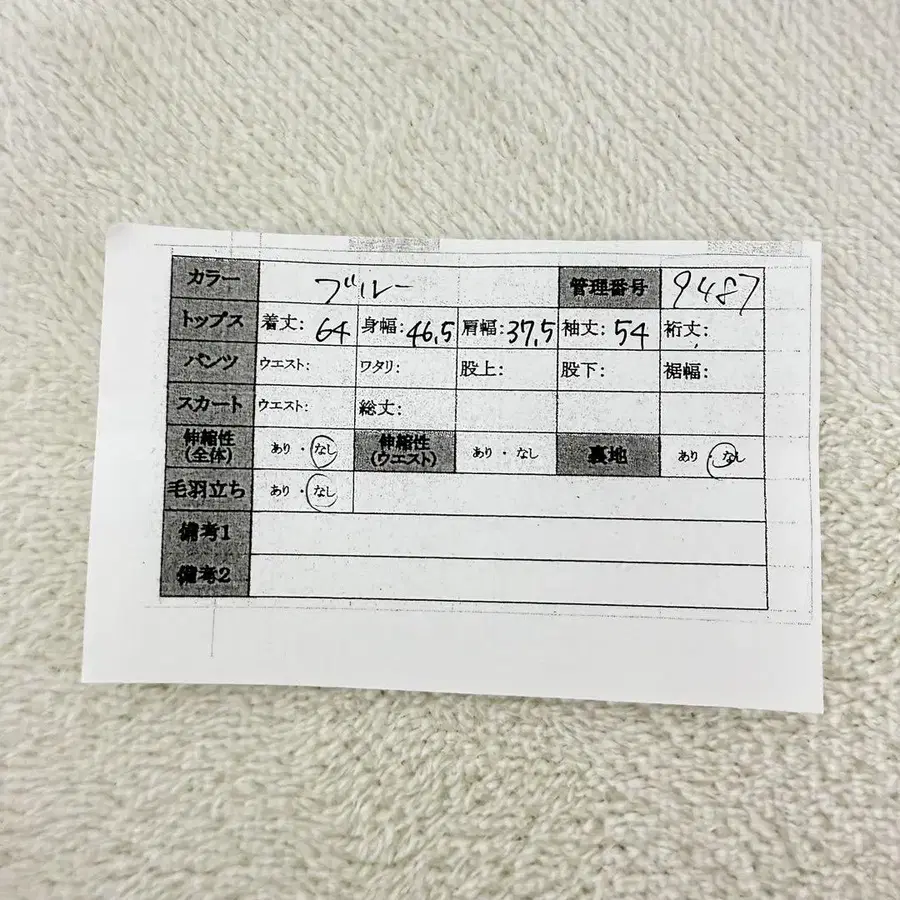 カラー ブルー 管理番号 9487
トップス 着丈: 64 身幅: 46.5 肩幅: 37.5 袖丈: 54 裄丈:
パンツ ウエスト: ワタリ: 股上: 股下: 裾幅:
スカート ウエスト: 総丈:
伸縮性(全体) あり ・ なし 伸縮性(ウエスト) あり ・ なし 裏地 あり ・ なし
毛羽立ち あり ・ なし
備考1
備考2